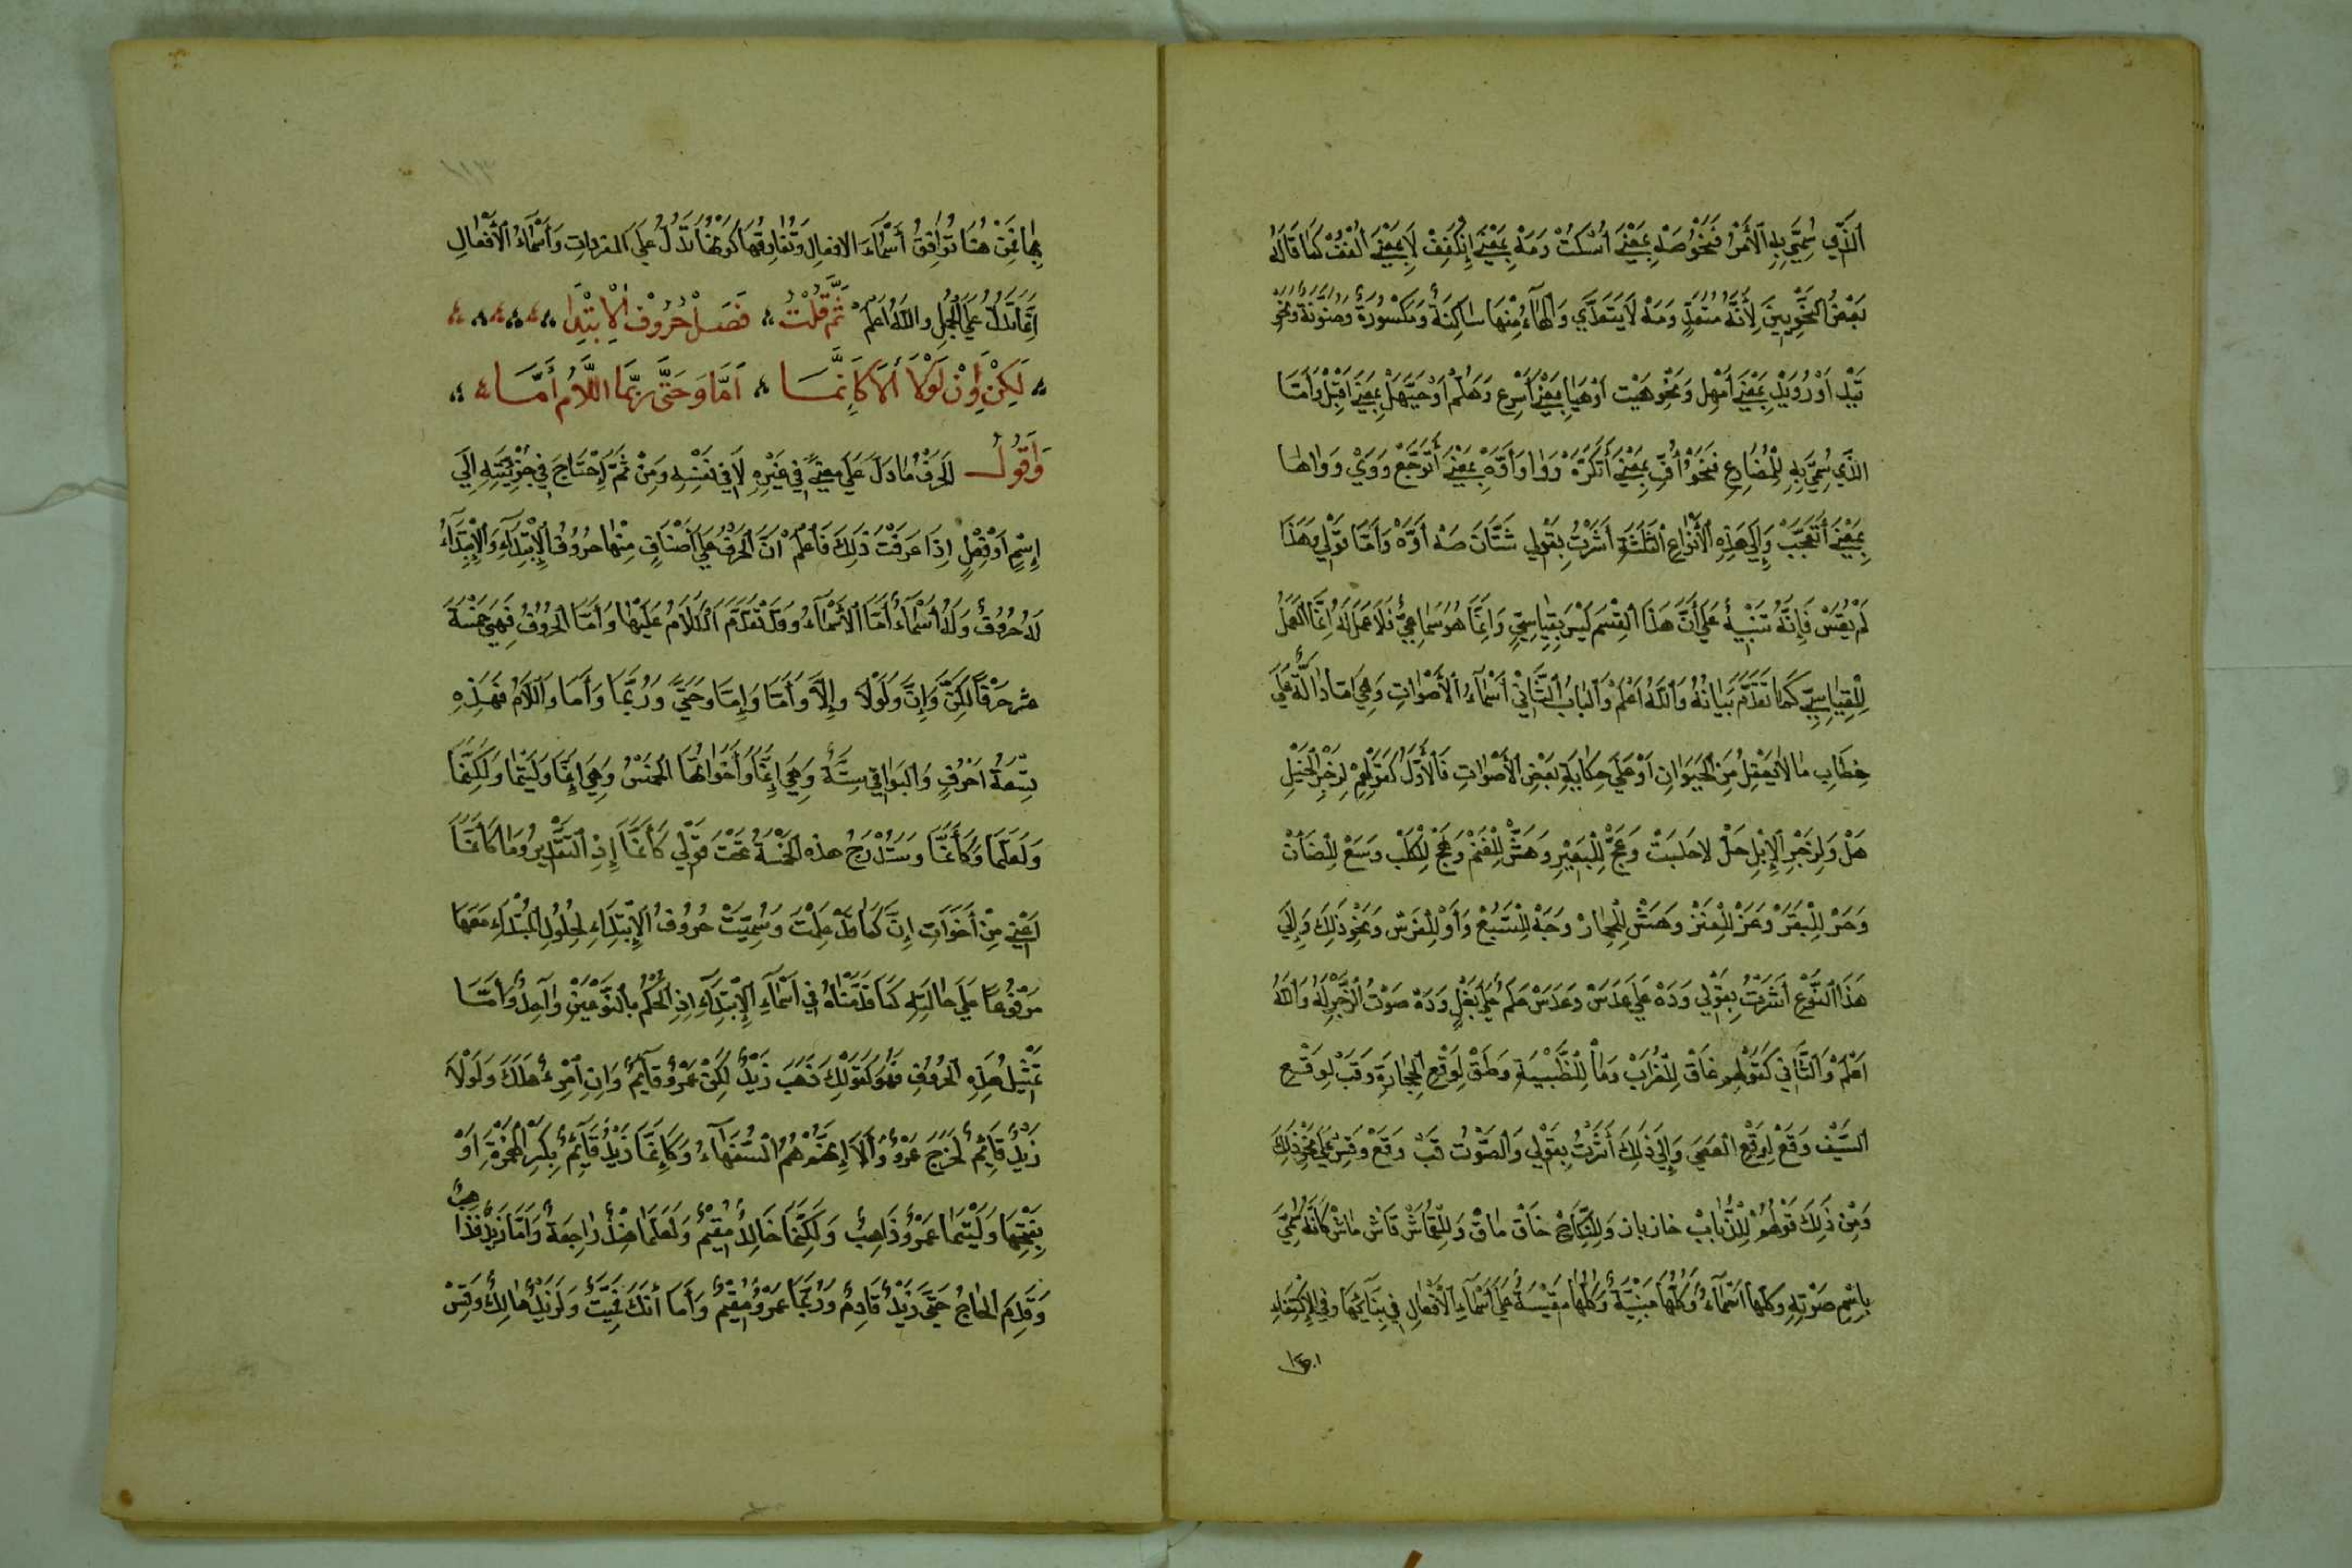 اَلَّذِي سُمِّيَ بِهِ اَلْأَمْرُ فَنَحْوُ صَهْ بِمَعْنَى اُسْكُتْ وَمَهْ بِمَعْنَى اِنْكَفِفْ لَا بِمَعْنَى اُكْفُفْ كَمَا قَالَهُ
بَعْضُ النَّحْوِيِّينَ لِأَنَّهُ مُتَعَدٍّ وَمَهْ لَا يَتَعَدَّي وَالْهَاءُ مِنْهَا سَاكِنَةٌ وَمَكْسُورَةٌ وَمُنَوَّنَةٌ وَنَحْوُ
تَيْدِ اَوْ رُوَيْدِ بِمَعْنَى أَمْهِل وَنَحْوِ هَيْت اَوْ هَيَا بِمَعْنَى أَسْرِع وَهَلُمْ اَوْ حَيَّهَلْ بِمَعْنَى اَقْبِلْ وَأَمَّا
الَّذِي سُمِّيَ بِهِ الْمُضَارِع فَنَحْوُ أُفٍّ بِمَعْنَى أَتَكَرَّهُ وَوَا وَأَوَّهْ بِمَعْنَى أَتَوَجَّعْ وَوَيْ وَوَاهًا
بِمَعْنَى أَتَعَجَّبُ وَإِلَى هَذِهِ الْأَنْوَاعِ الْثَلَثَةِ أَشَرْتُ بِقَوْلِي شَتَّانَ صَهْ أَوَّهْ وَأَمَّا قَوْلِي وَهَذَا
لَمْ يُقَسْ فَإِنَّهُ تَنْبِيهٌ عَلَى أَنَّ هَذَا الْقِسْم لَيْسَ بِقِيَاسِيٍّ وَاِنَّمَا هُوَ سَمَاعِيٌّ فَلَا عَمَلَ لَهُ اِنَّمَا الْعَمَلُ
لِلْقِيَاسِيِّ كَمَا تَقَدَّمَ بَيَانُهُ وَاَللَّهُ اَعْلَمْ وَاَلْبَابُ الثَّانِيْ أَسْمَآءُ الْأَصْوَاتِ وَهِيَ اَمَّا دَالَّةٌ عَلَى
خِطَابِ مَا لَا يَعْقِلُ مِنَ الْحَيَوَانِ اَوْ عَلَى حِكَايَةِ بَعْضِ الْأَصْوَاتِ فَالْأَوَّلُ كَقَوْلِهِمْ لِزَجْرِ الْخَيْلِ
هَلْ وَلِزَجْرِ الْإِبِلِ حَلْ لَا حَلَبْت وَعَجْ لِلْبَعِيْرِ وَهَسْ لِلْغَنَمْ وَهَجْ لِلْكَلْب وَسَعْ لِلْضَأْنْ
وَحَرْ لِلْبَقَرْ وَعَزْ لِلْعَنْزْ وَهَسْ لِلْحِمَارْ وَجَهْ لِلْسَبُعْ وَأَوْ لِلْفَرَسْ وَنَحْوِ ذَلِكَ وَإِلَى
هَذَا النَّوْعِ أَشَرْتُ بِقَوْلِي وَدَهْ عَلَى عَدَسْ وَعَدَسْ عَلَمٌ عَلَى بَغْلٍ وَدَهْ صَوْتُ الزَّجْرِ لَهُ وَاَللَّهُ
اَعْلَمْ وَالثَّانِي كَقَوْلِهِمِ غَاقْ لِلْغُرَابْ وَمَاْ لِلْظَّبْيَةِ وَطَقْ لِوَقْعِ الْحِجَارَةِ وَقَبْ لِوَقْعِ
السَّيْف وَقَعْ لِوَقْعِ الْعَصَى وَإِلَى ذَلِكَ أَشَرْتُ بِقَوْلِي وَالصَّوْتُ قَبْ وَقَعْ وَقِسْ عَلَى نَحْوِ ذَلِكَ
وَمِنْ ذَلِكَ قَوْلُهُمْ لِلْذُّبَابْ خَازِبَاز وَلِلنِّكَاحْ خَاقْ بَاقْ وَلِلْقُمَاشْ قَاشْ مَاشْ كَأَنَّهُ سُمِّيَ
بِاِسْمِ صَوْتِهِ وَكُلُّهَا اَسْمَآءٌ وَكُلُّهَا مَبْنِيَّةٌ وَكُلُّهَا مَقِيْسَةٌ عَلَى أَسْمَآءِ الْأَفْعَالِ فِي بِنَآئِهَا وَفِي الْإِكْتِفَاءِ
بِهَا فَمِنْ هُنَا تُوَافِقُ أَسْمَآءَ الافعالِ وَتُفَارِقُهَا كَوْنُهَا تَدُلُّ عَلَى المفرداتِ وَأَسْمَآءُ الْأَفْعَالِ
اِنَّمَا تَدُلُّ عَلَى الْجُمَلِ واللّٰهُ اعْلَمْ ثُمَّ قُلْتُ فَصْلْ حُرُوْفُ الْإِبْتِدَا
لَكِنْ وَإِنْ لَوْلَا أَلَا كَإِنَّمَا اَمَّا وَحَتَّى رُبَّمَا اللَّامُ أَمَا
وَاَقُولُ اَلْحَرْفُ مَا دَلَّ عَلَى مَعْنًى فِي غَيْرِهِ لَا فِي نَفْسِهِ وَمِنْ ثَمَّ اِحْتَاجَ فِي جُزْئِيَّتِهِ اِلَى
إِسْمٍ اَوْ فِعْلٍ اِذَا عَرَفْتَ ذَلِكَ فَاعْلَمْ اَنَّ الْحَرْفَ عَلَى اَصْنَافٍ مِنْهَا حُرُوْفُ الْإِبْتِدَآءِ وَالْإِبْتِدَآءُ
لَهُ حُرُوْفٌ وَلَهُ أَسْمَآءٌ أَمَّا الْأَسْمَآءُ وَقَدْ تَقَدَّمَ الْكَلَامُ عَلَيْهَا وَأَمَّا الْحُرُوْفُ فَهِيَ خَمْسَةَ
عشر حَرْفًا لَكِنَّ وَإِنَّ وَلَوْلَا وَإِلَّا وَأَمَّا وَإِمَّا وَحَتَّى وَرُبَّمَا وَأَمَا وَاَللَّامُ فَهَذِهِ
تِسْعَةُ اَحْرُفٍ وَالْبَوَاقِي سِتَّةٌ وَهِيَ اِنَّمَا وَأَخَوَاتُهَا الْخَمْسُ وَهِيَ إِنَّمَا وَلَيْتَمَا وَلَكِنَّمَا
وَلَعَلَّمَا وَكَأَنَّمَا وَسَتُدْرَجُ هذه الْخَمْسَةُ تَحْتَ قَوْلِي كَأَنَّمَا إِذِ الْتَقْدِيرُ وَمَا كَأَنَّمَا
اَعْنِي مِنْ أَخَوَاتِ إِنَّ كَمَا قَدْ عَلِمْتَ وَسُمِّيَتْ حُرُوْفُ الْإِبْتِدَاءِ لِحُلُوْلِ الْمُبْتَدَاءِ مَعَهَا
مَرْفُوْعًا عَلَى حَالَتِهِ كَمَا قَدَّمْنَاهُ فِي اَسْمَآءِ الْإِبْتِدَآءِ اِذِ الْحُكْمُ بِالنَّوْعَيْنِ وَاَحِدٌ وَأَمَّا
تَمْثِيْلُ هَذِهِ الْحُرُوْفِ فَهُوَ كَقَوْلِكَ ذَهَبَ زَيْدٌ لَكِنْ عَمْرٌو قَآئِمٌ وَاِنِ اَمْرِءٌ هَلَكَ وَلَوْلَا
زَيْدٌ قَآئِمٌ لَخَرَجَ عَمْرٌو وَأَلَا إِنَّهُمْ هُمُ السُّفَهَآءُ وَكَإِنَّمَا زَيْدٌ قَآئِمٌ بِكَسْرِ الْهَمْزَةِ اَوْ
بِفَتْحِهَا وَلَيْتَمَا عَمْرٌو ذَاهِبٌ وَلَكِنَّمَا خَالِدٌ مُقِيْمٌ وَلَعَلَّمَا هِنْدٌ رَاجِعَةٌ وَأَمَّا زَيْدٌ فَذَاهِبٌ
وَقَدِمَ الْحَاجُّ حَتَّى زَيْدٌ قَادِمٌ وَرُبَّمَا عَمْرٌو مُقِيْمٌ وَأَمَا أَنَّكَ وَلَزَيْدٌ هَالِكٌ وَقِسْ